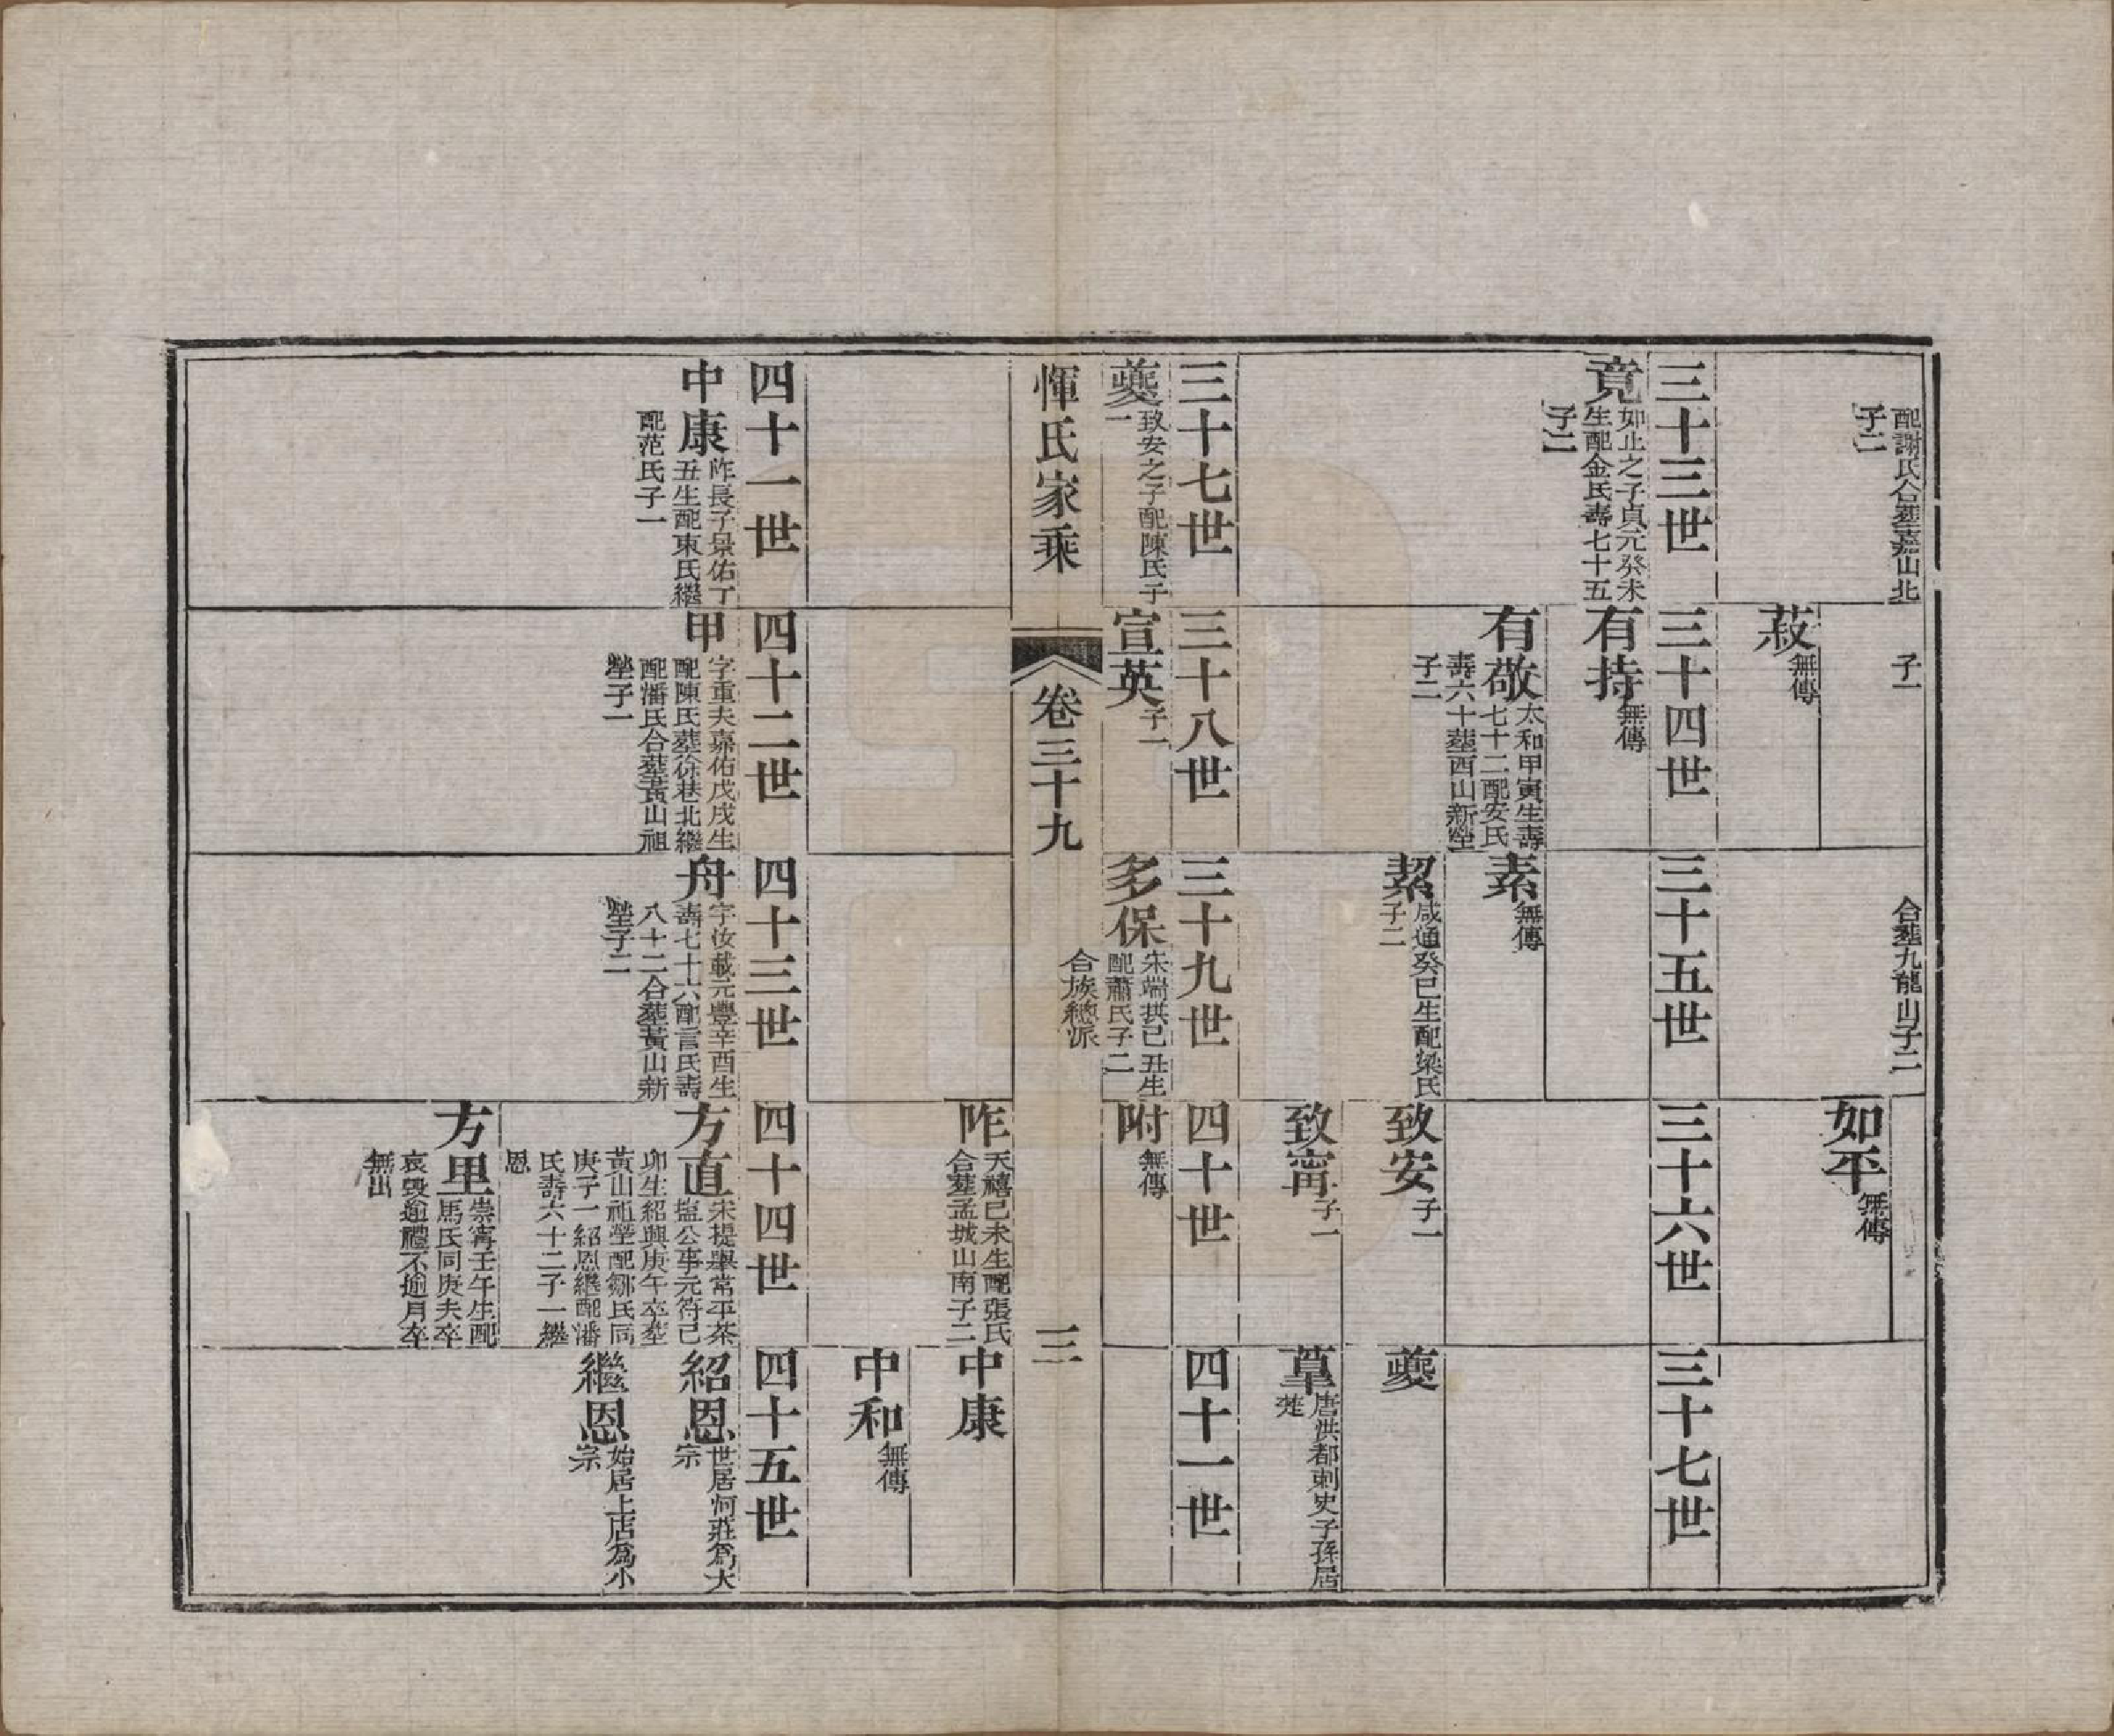 配謝氏合塟嘉山北
子二
子一
合塟九龍山子二
菽無傳
如平無傳
三十三世
三十四世
三十五世
三十六世
三十七世
竟如止之子貞元癸未
生配金氏壽七十五
子二
有持無傳
有敬太和甲寅生壽
七十二配安氏
壽六十塟西山新塋
子二
素無傳
絜咸通癸巳生配梁氏
子二
致安子一
夔
致甯子一
唐洪都刺史子孫居
楚
三十七世
三十八世
三十九世
四十世
四十一世
夔致安之子配陳氏子
一
宣英子一
多保宋端拱己丑生
配蕭氏子二
附無傳
惲氏家乘
卷三十九
合族總派
三
胙天禧己未生配張氏
合塟孟城山南子二
中康
中和無傳
四十一世
四十二世
四十三世
四十四世
四十五世
中康胙長子景佑丁
丑生配東氏繼
配范氏子一
甲字重夫嘉佑戊戌生
配陳氏塟徐巷北繼
配潘氏合塟黃山祖
塋子一
舟字汝載元豐辛酉生
壽七十六配言氏壽
八十二合塟黃山新
塋子二
方直宋提舉常平茶
塩公事元符己
卯生紹興庚午卒塟
黃山祖塋配鄒氏同
庚子一紹恩繼配潘
氏壽六十二子一繼
恩
紹恩世居河莊爲大
宗
繼恩始居上店爲小
宗
方里崇甯壬午生配
馬氏同庚夫卒
哀毀逾禮不逾月卒
無出